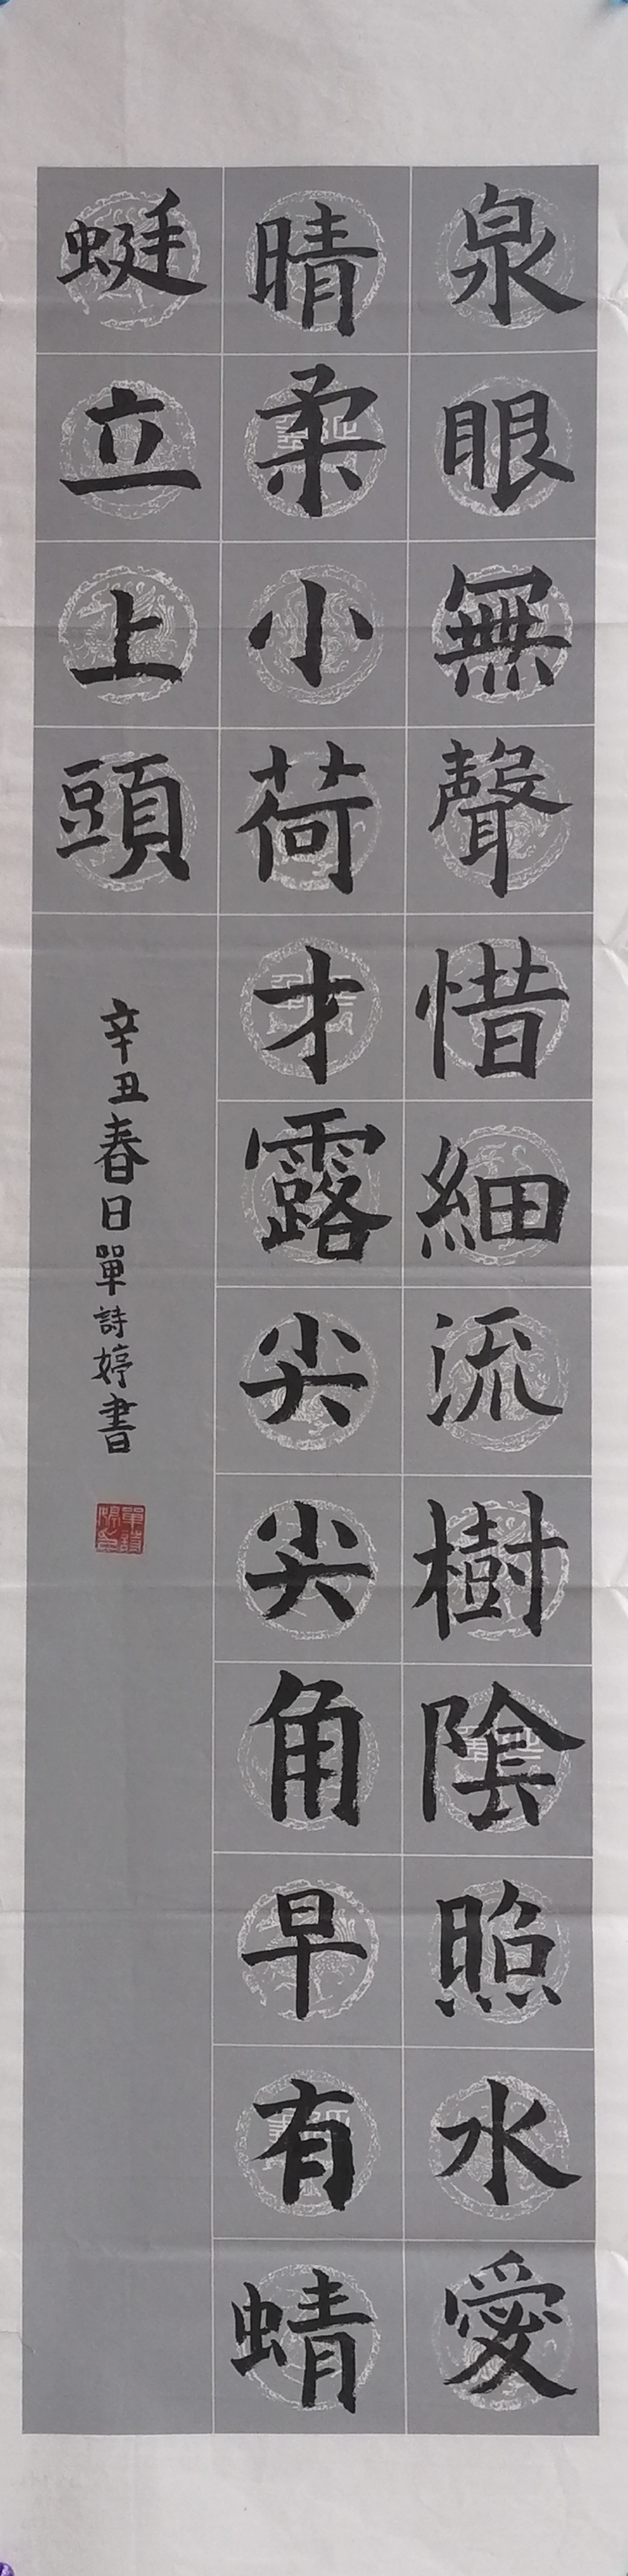 泉眼無聲惜細流樹陰照水愛
晴柔小荷才露尖尖角早有蜻
蜓立上頭
辛丑春日單詩婷書
單詩婷印